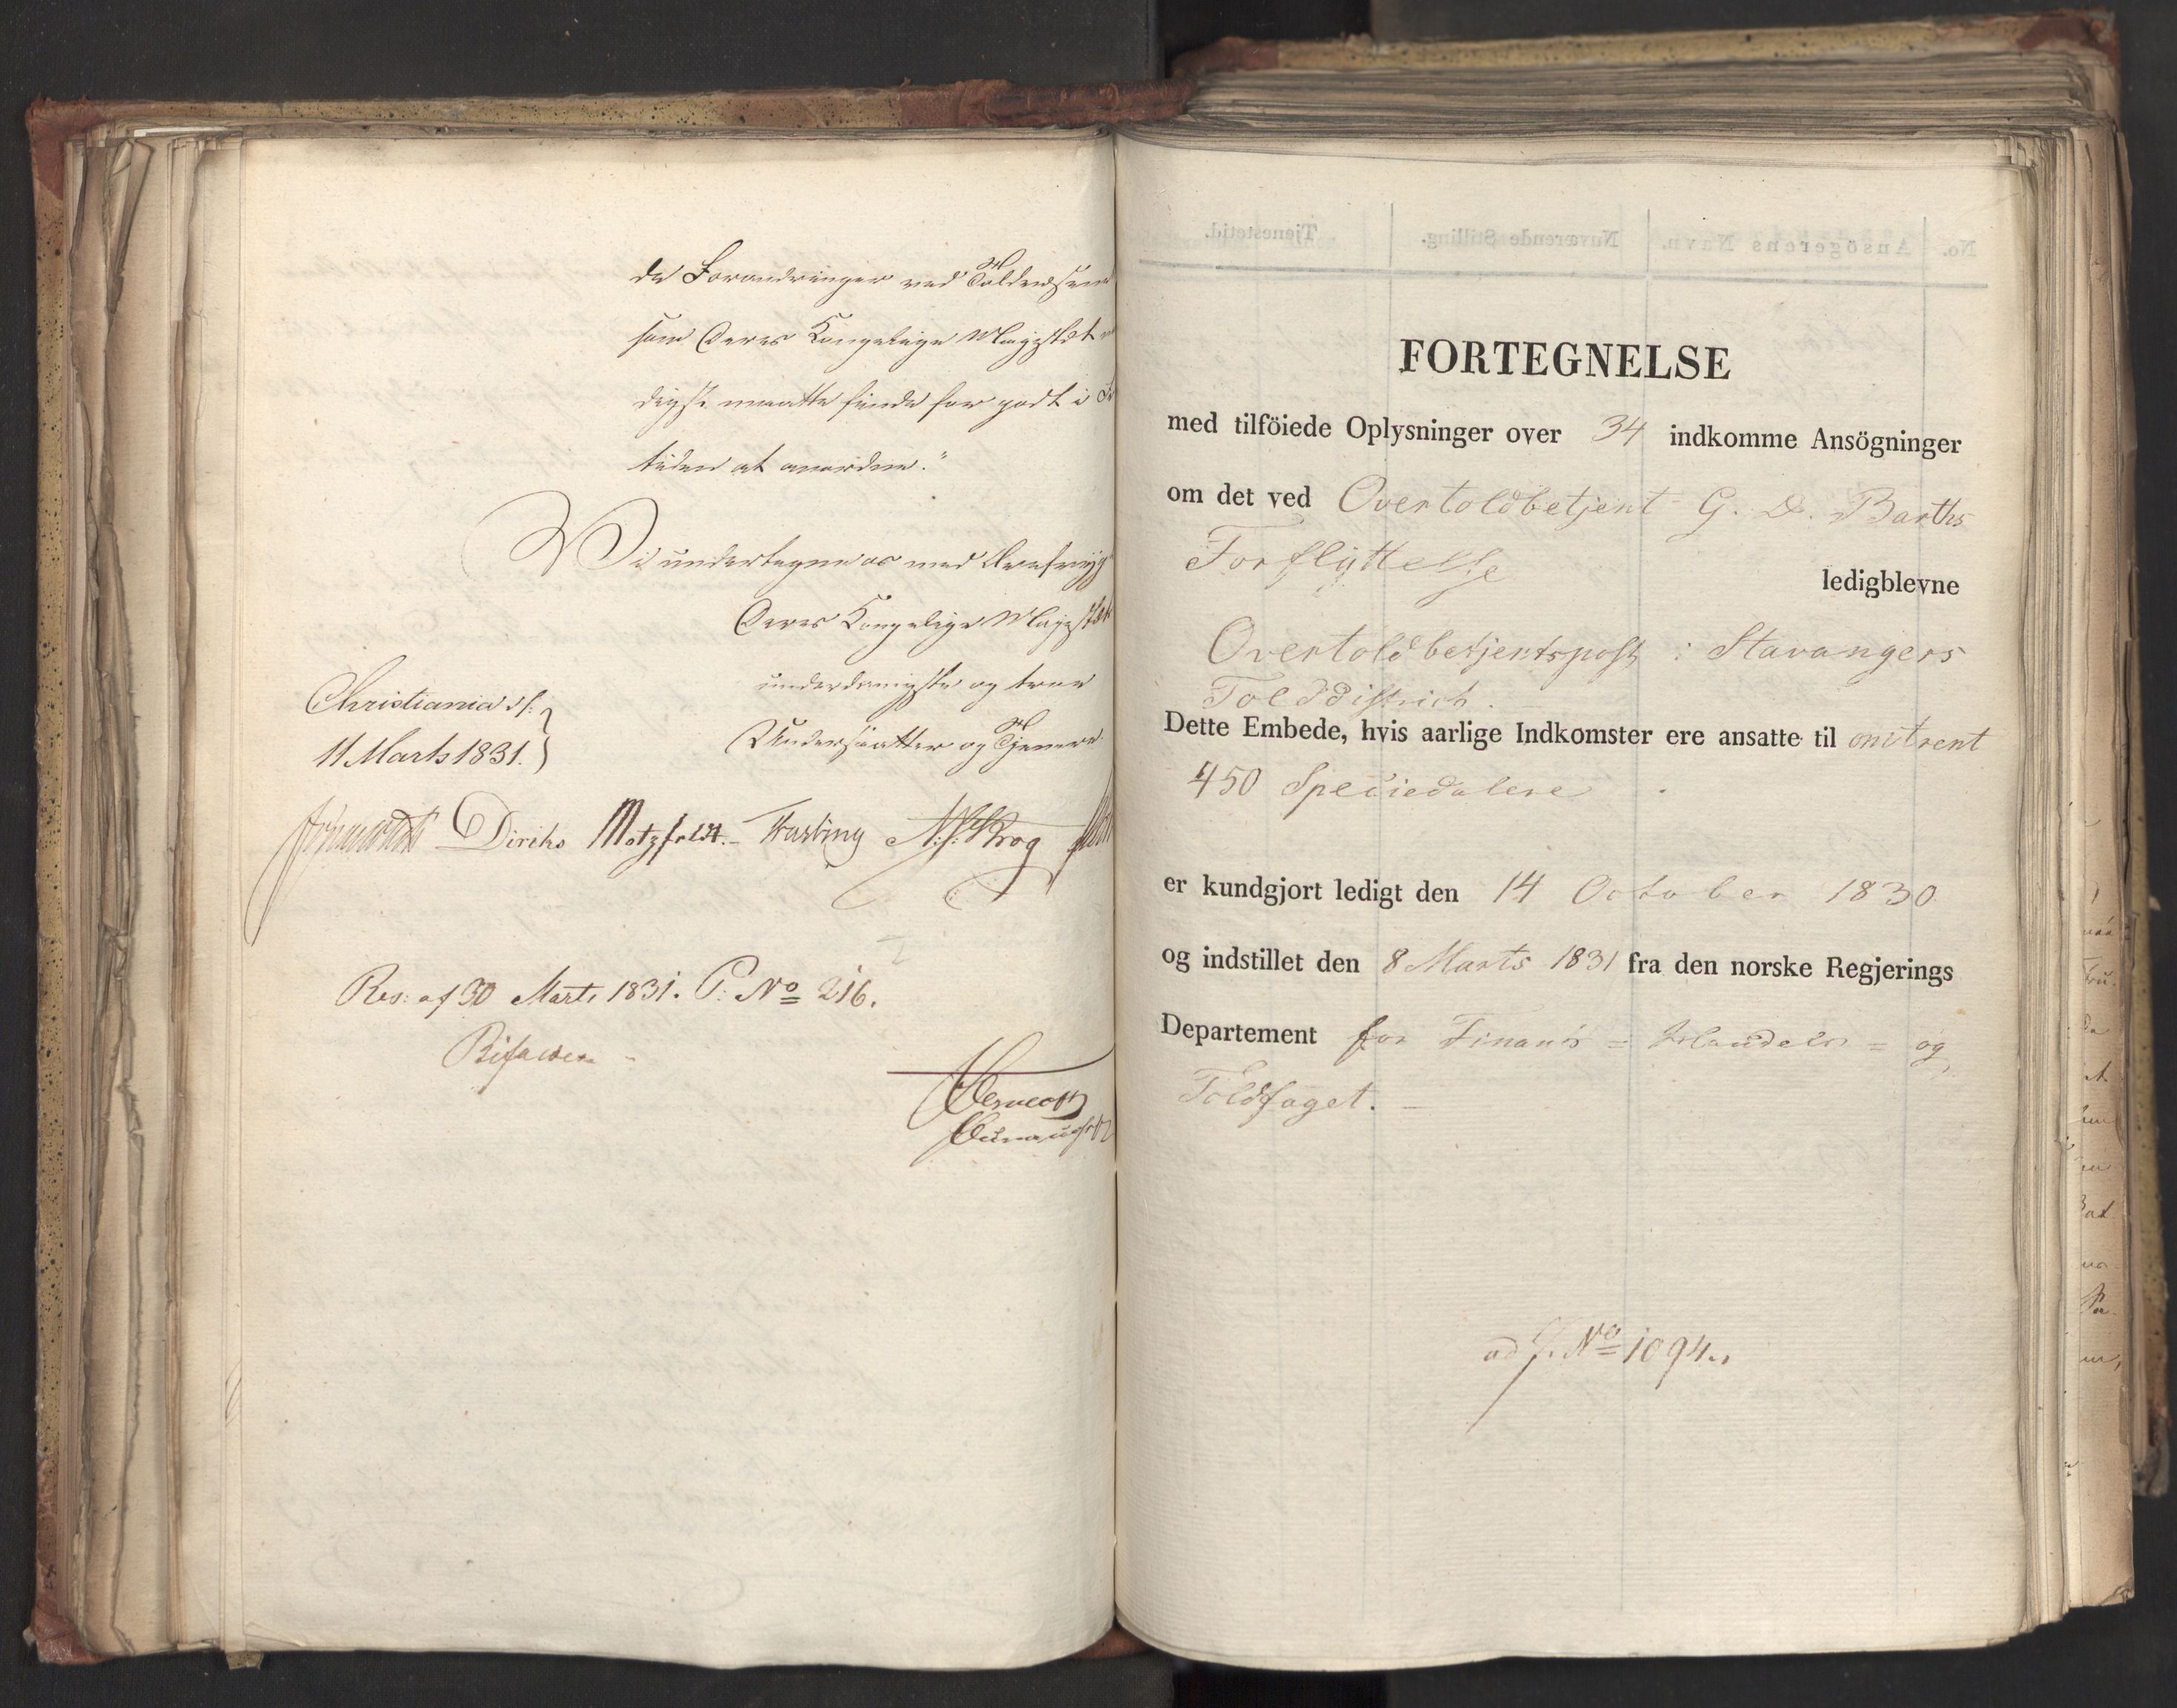 de Forandringer ved Toldvæsenet
som Deres Kongelige Majestæt
digst maatte finde for godt i
tiden at anordne."
Vi undertegne os med
Deres Kongelige Majestæts
underdanigste og troe
Undersaatter og Tjenere
Christiania d.
11 Marts 1831.
Diriks Motzfeldt. Fasting Krog
Res: af 30 Marts 1831. P: No 216.
Bifaldes
FORTEGNELSE
med tilföiede Oplysninger over 34 indkomme Ansögninger
om det ved Overtoldbetjent G. D. Barths
Forflyttelse
ledigblevne
Overtoldbetjentspost i Stavangers
Tolddistrict.
Dette Embede, hvis aarlige Indkomster ere ansatte til omtrent
450 Speciedalere
er kundgjort ledigt den 14 October 1830
og indstillet den 8 Marts 1831 fra den norske Regjerings
Departement for Finants = Handels = og
Toldfaget.
ad J. No 1094.